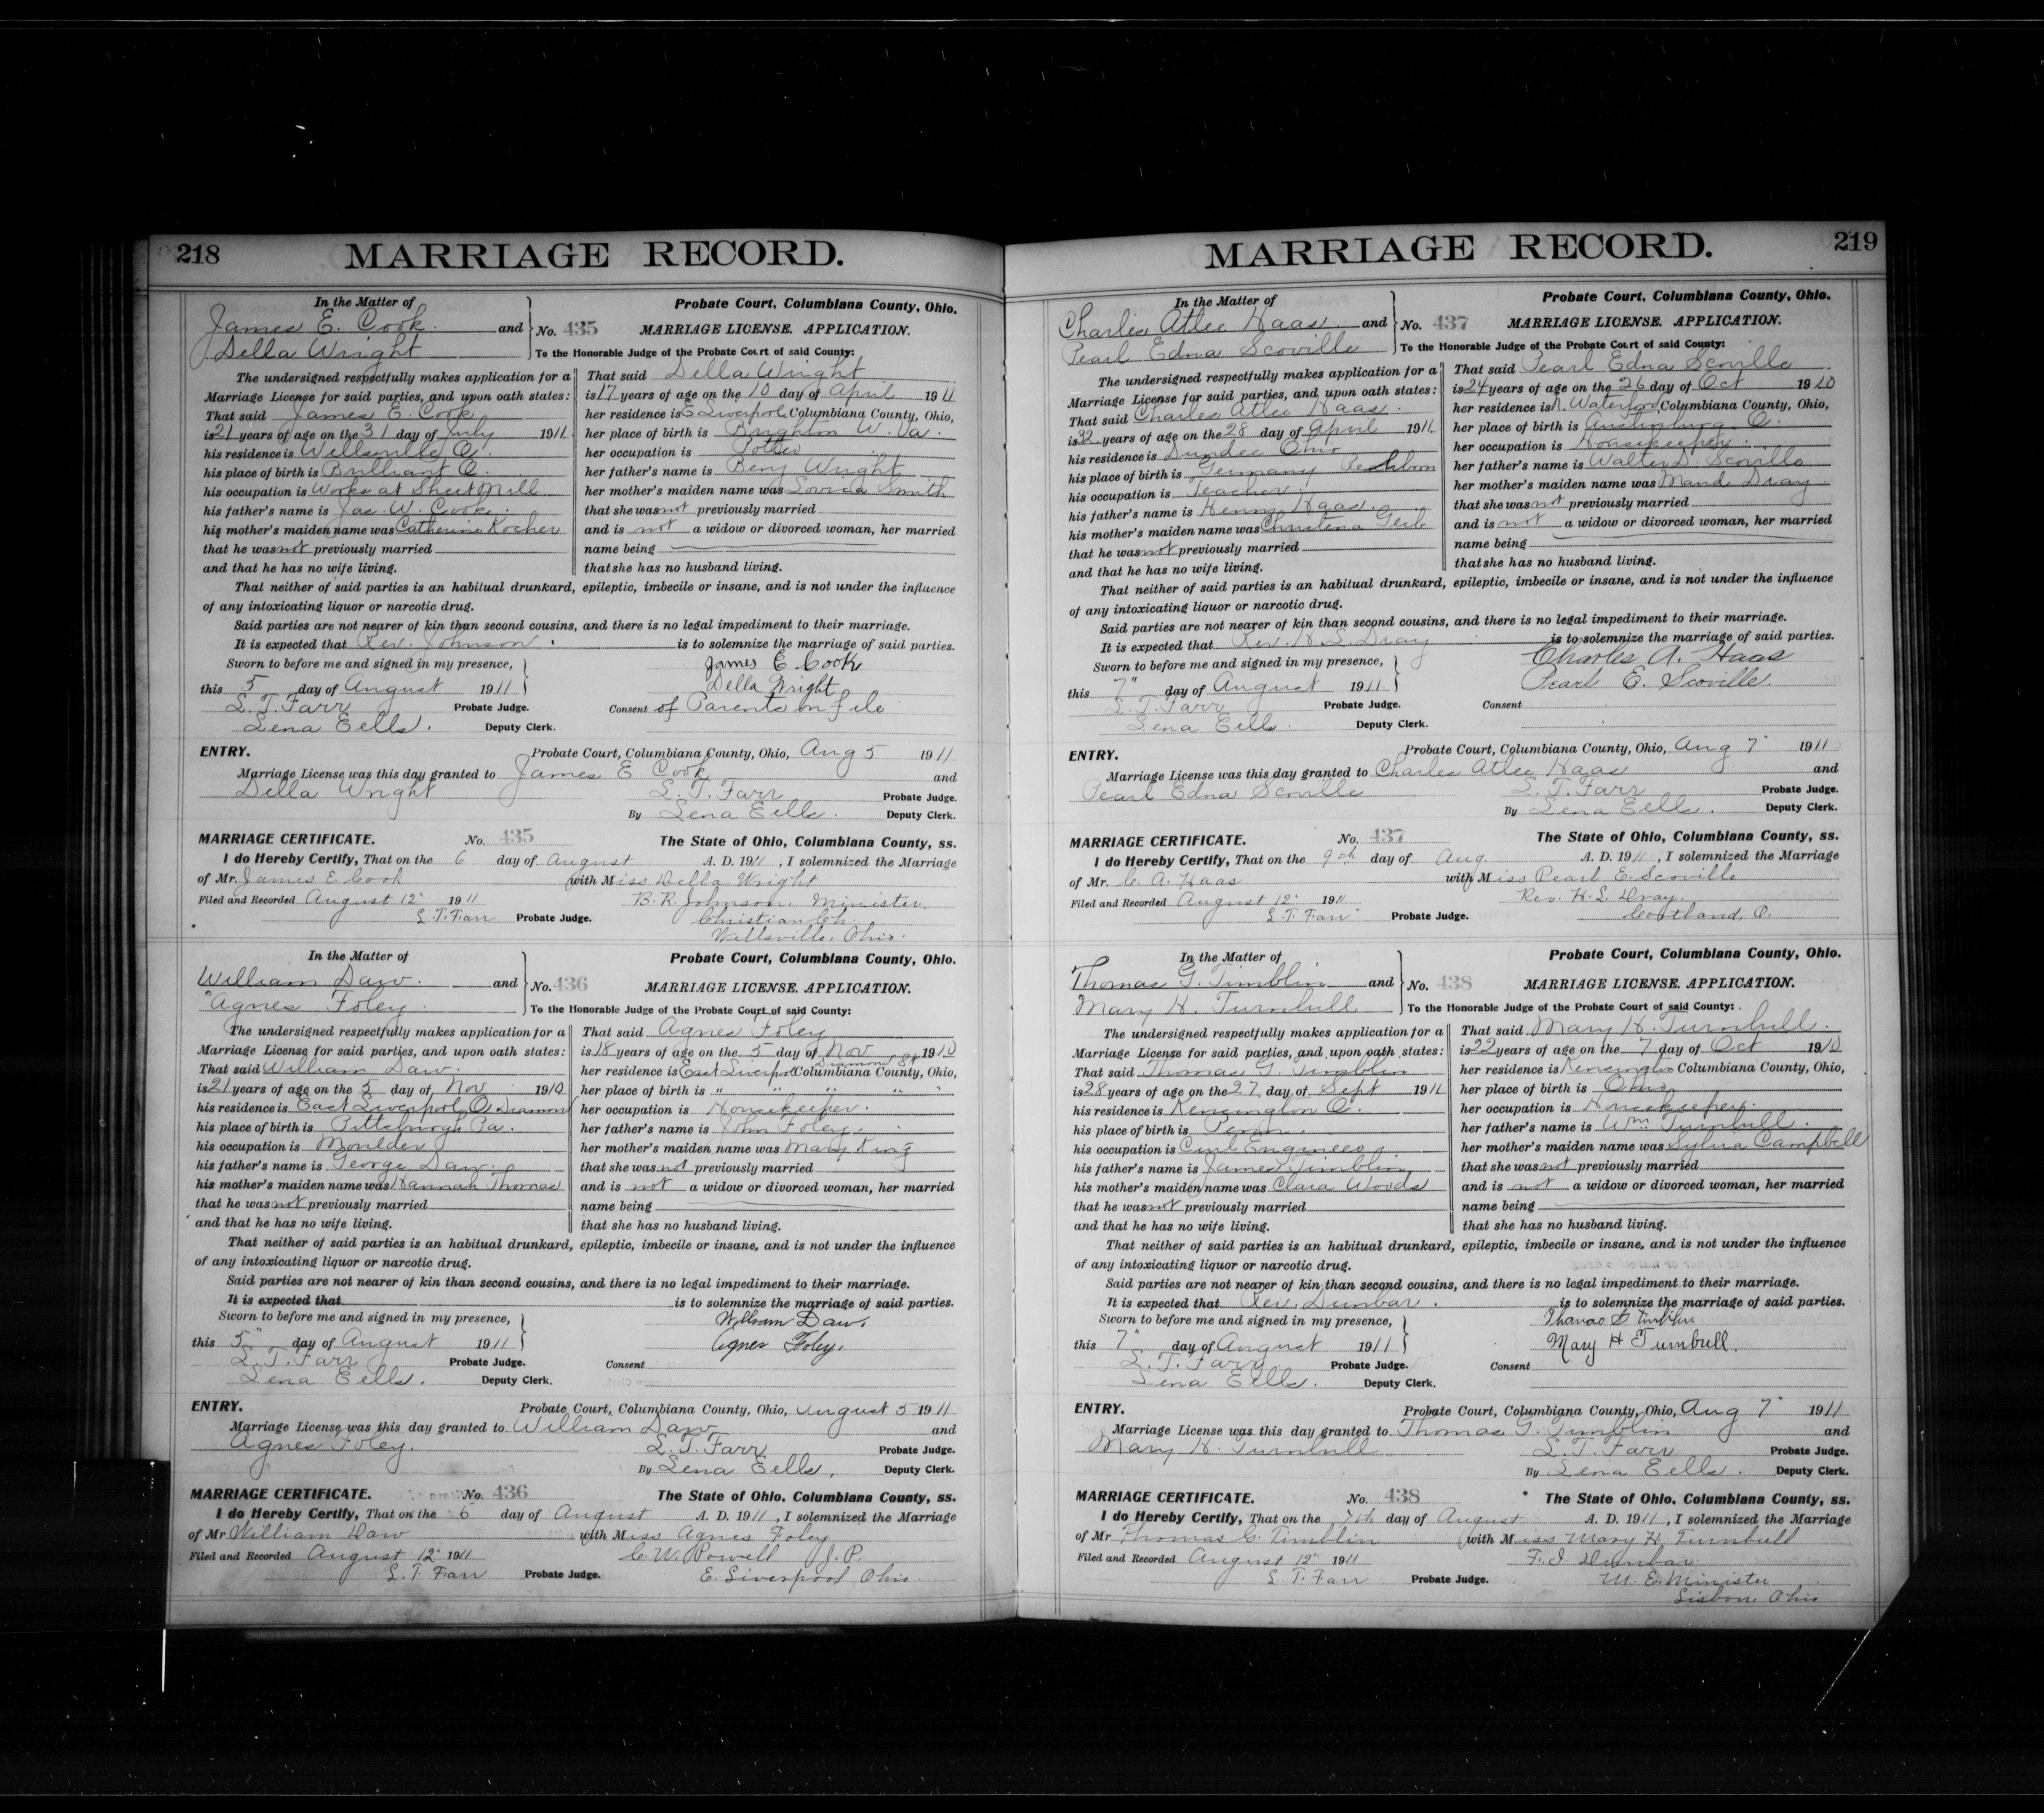 218
MARRIAGE RECORD.
In the Matter of
James E. Cook and
Della Wright
No. 435
Probate Court, Columbiana County, Ohio.
MARRIAGE LICENSE. APPLICATION.
To the Honorable Judge of the Probate Court of said County:
The undersigned respectfully makes application for a
Marriage License for said parties, and upon oath states:
That said James E. Cook
is 21 years of age on the 31 day of July 1911
his residence is Wellsville O.
his place of birth is Brilliant O.
his occupation is Works at Sheet Mill
his father's name is Jas. W. Cook.
his mother's maiden name was Catherine Kocher
that he was not previously married
and that he has no wife living.
That said Della Wright
is 17 years of age on the 10 day of April 1911
her residence is E Liverpool Columbiana County, Ohio,
her place of birth is Brighton W. Va.
her occupation is Potter
her father's name is Benj Wright
her mother's maiden name was Lovica Smith
that she was not previously married
and is not a widow or divorced woman, her married
name being
that she has no husband living.
That neither of said parties is an habitual drunkard, epileptic, imbecile or insane, and is not under the influence
of any intoxicating liquor or narcotic drug.
Said parties are not nearer of kin than second cousins, and there is no legal impediment to their marriage.
It is expected that Rev. Johnson. is to solemnize the marriage of said parties.
Sworn to before me and signed in my presence,
James E Cook
this 5 day of August 1911
Della Wright
L. T. Farr Probate Judge.
Consent of Parents on file
Lena Eells. Deputy Clerk.
ENTRY.
Probate Court, Columbiana County, Ohio, Aug 5 1911
Marriage License was this day granted to James E. Cook and
Della Wright
L. T. Farr Probate Judge.
By Lena Eells. Deputy Clerk.
MARRIAGE CERTIFICATE. No. 435 The State of Ohio, Columbiana County, ss.
I do Hereby Certify, That on the 6 day of August A. D. 1911, I solemnized the Marriage
of Mr. James E. Cook with Miss Della Wright
Filed and Recorded August 12" 1911 B. R. Johnson. Minister.
L. T. Farr Probate Judge. Christian Ch.
Wellsville, Ohio.
In the Matter of
William Daw. and
Agnes Foley
No. 436
Probate Court, Columbiana County, Ohio.
MARRIAGE LICENSE. APPLICATION.
To the Honorable Judge of the Probate Court of said County:
The undersigned respectfully makes application for a
Marriage License for said parties, and upon oath states:
That said William Daw.
is 21 years of age on the 5 day of Nov 1910
his residence is East Liverpool O.
his place of birth is Pittsburgh Pa.
his occupation is Moulder
his father's name is George Daw.
his mother's maiden name was Hannah Thomas
that he was not previously married
and that he has no wife living.
That said Agnes Foley
is 18 years of age on the 5 day of Nov 1910
her residence is East Liverpool Columbiana County, Ohio,
her place of birth is " " " " "
her occupation is Housekeeper.
her father's name is John Foley.
her mother's maiden name was Mary King
that she was not previously married
and is not a widow or divorced woman, her married
name being
that she has no husband living.
That neither of said parties is an habitual drunkard, epileptic, imbecile or insane, and is not under the influence
of any intoxicating liquor or narcotic drug.
Said parties are not nearer of kin than second cousins, and there is no legal impediment to their marriage.
It is expected that is to solemnize the marriage of said parties.
Sworn to before me and signed in my presence,
William Daw.
this 5" day of August 1911
Agnes Foley.
L. T. Farr Probate Judge.
Consent
Lena Eells. Deputy Clerk.
ENTRY.
Probate Court, Columbiana County, Ohio, August 5 1911
Marriage License was this day granted to William Daw and
Agnes Foley.
L. T. Farr Probate Judge.
By Lena Eells. Deputy Clerk.
MARRIAGE CERTIFICATE. No. 436 The State of Ohio, Columbiana County, ss.
I do Hereby Certify, That on the 6 day of August A. D. 1911, I solemnized the Marriage
of Mr William Daw with Miss Agnes Foley
Filed and Recorded August 12" 1911 C. W. Powell J. P.
L. T Farr Probate Judge. E. Liverpool Ohio.
219
MARRIAGE RECORD.
In the Matter of
Charles Atlee Haas. and
Pearl Edna Scoville
No. 437
Probate Court, Columbiana County, Ohio.
MARRIAGE LICENSE. APPLICATION.
To the Honorable Judge of the Probate Court of said County:
The undersigned respectfully makes application for a
Marriage License for said parties, and upon oath states:
That said Charles Atlee Haas.
is 32 years of age on the 28 day of April 1911
his residence is Dundee Ohio
his place of birth is Germany
his occupation is Teacher.
his father's name is Henry Haas.
his mother's maiden name was Christena Geib
that he was not previously married
and that he has no wife living.
That said Pearl Edna Scoville
is 24 years of age on the 26 day of Oct 1910
her residence is N. Waterford Columbiana County, Ohio,
her place of birth is Austinburg O.
her occupation is Housekeeper.
her father's name is Walter D. Scoville
her mother's maiden name was Maud Dray
that she was not previously married
and is not a widow or divorced woman, her married
name being
that she has no husband living.
That neither of said parties is an habitual drunkard, epileptic, imbecile or insane, and is not under the influence
of any intoxicating liquor or narcotic drug.
Said parties are not nearer of kin than second cousins, and there is no legal impediment to their marriage.
It is expected that Rev. H. L. Dray is to solemnize the marriage of said parties.
Sworn to before me and signed in my presence,
Charles A. Haas
this 7" day of August 1911
Pearl E. Scoville
L. T. Farr Probate Judge.
Consent
Lena Eells. Deputy Clerk.
ENTRY.
Probate Court, Columbiana County, Ohio, Aug 7" 1911
Marriage License was this day granted to Charles Atlee Haas and
Pearl Edna Scoville
L. T. Farr Probate Judge.
By Lena Eells. Deputy Clerk.
MARRIAGE CERTIFICATE. No. 437 The State of Ohio, Columbiana County, ss.
I do Hereby Certify, That on the 9th day of Aug. A. D. 1911, I solemnized the Marriage
of Mr. C. A. Haas with Miss Pearl E. Scoville
Filed and Recorded August 12" 1911 Rev. H. L. Dray.
L. T. Farr Probate Judge. Cortland, O.
In the Matter of
Thomas G. Timblin and
Mary H. Turnbull
No. 438
Probate Court, Columbiana County, Ohio.
MARRIAGE LICENSE. APPLICATION.
To the Honorable Judge of the Probate Court of said County:
The undersigned respectfully makes application for a
Marriage License for said parties, and upon oath states:
That said Thomas G. Timblin
is 28 years of age on the 27 day of Sept 1911
his residence is Kensington O.
his place of birth is Penn.
his occupation is Civil Engineer.
his father's name is James Timblin
his mother's maiden name was Clara Woods
that he was not previously married
and that he has no wife living.
That said Mary H. Turnbull.
is 22 years of age on the 7 day of Oct 1910
her residence is Kensington Columbiana County, Ohio,
her place of birth is Ohio
her occupation is Housekeeper.
her father's name is Wm Turnbull.
her mother's maiden name was Sylvia Campbell
that she was not previously married
and is not a widow or divorced woman, her married
name being
that she has no husband living.
That neither of said parties is an habitual drunkard, epileptic, imbecile or insane, and is not under the influence
of any intoxicating liquor or narcotic drug.
Said parties are not nearer of kin than second cousins, and there is no legal impediment to their marriage.
It is expected that Rev. Dunbar. is to solemnize the marriage of said parties.
Sworn to before me and signed in my presence,
Thomas G Timblin
this 7" day of August 1911
Mary H Turnbull.
L. T. Farr Probate Judge.
Consent
Lena Eells. Deputy Clerk.
ENTRY.
Probate Court, Columbiana County, Ohio, Aug 7" 1911
Marriage License was this day granted to Thomas G. Timblin and
Mary H. Turnbull
L. T. Farr Probate Judge.
By Lena Eells. Deputy Clerk.
MARRIAGE CERTIFICATE. No. 438 The State of Ohio, Columbiana County, ss.
I do Hereby Certify, That on the 7th day of August A. D. 1911, I solemnized the Marriage
of Mr Thomas G. Timblin with Miss Mary H. Turnbull
Filed and Recorded August 12" 1911 F. I. Dunbar
L. T. Farr Probate Judge. M. E. Minister
Lisbon, Ohio